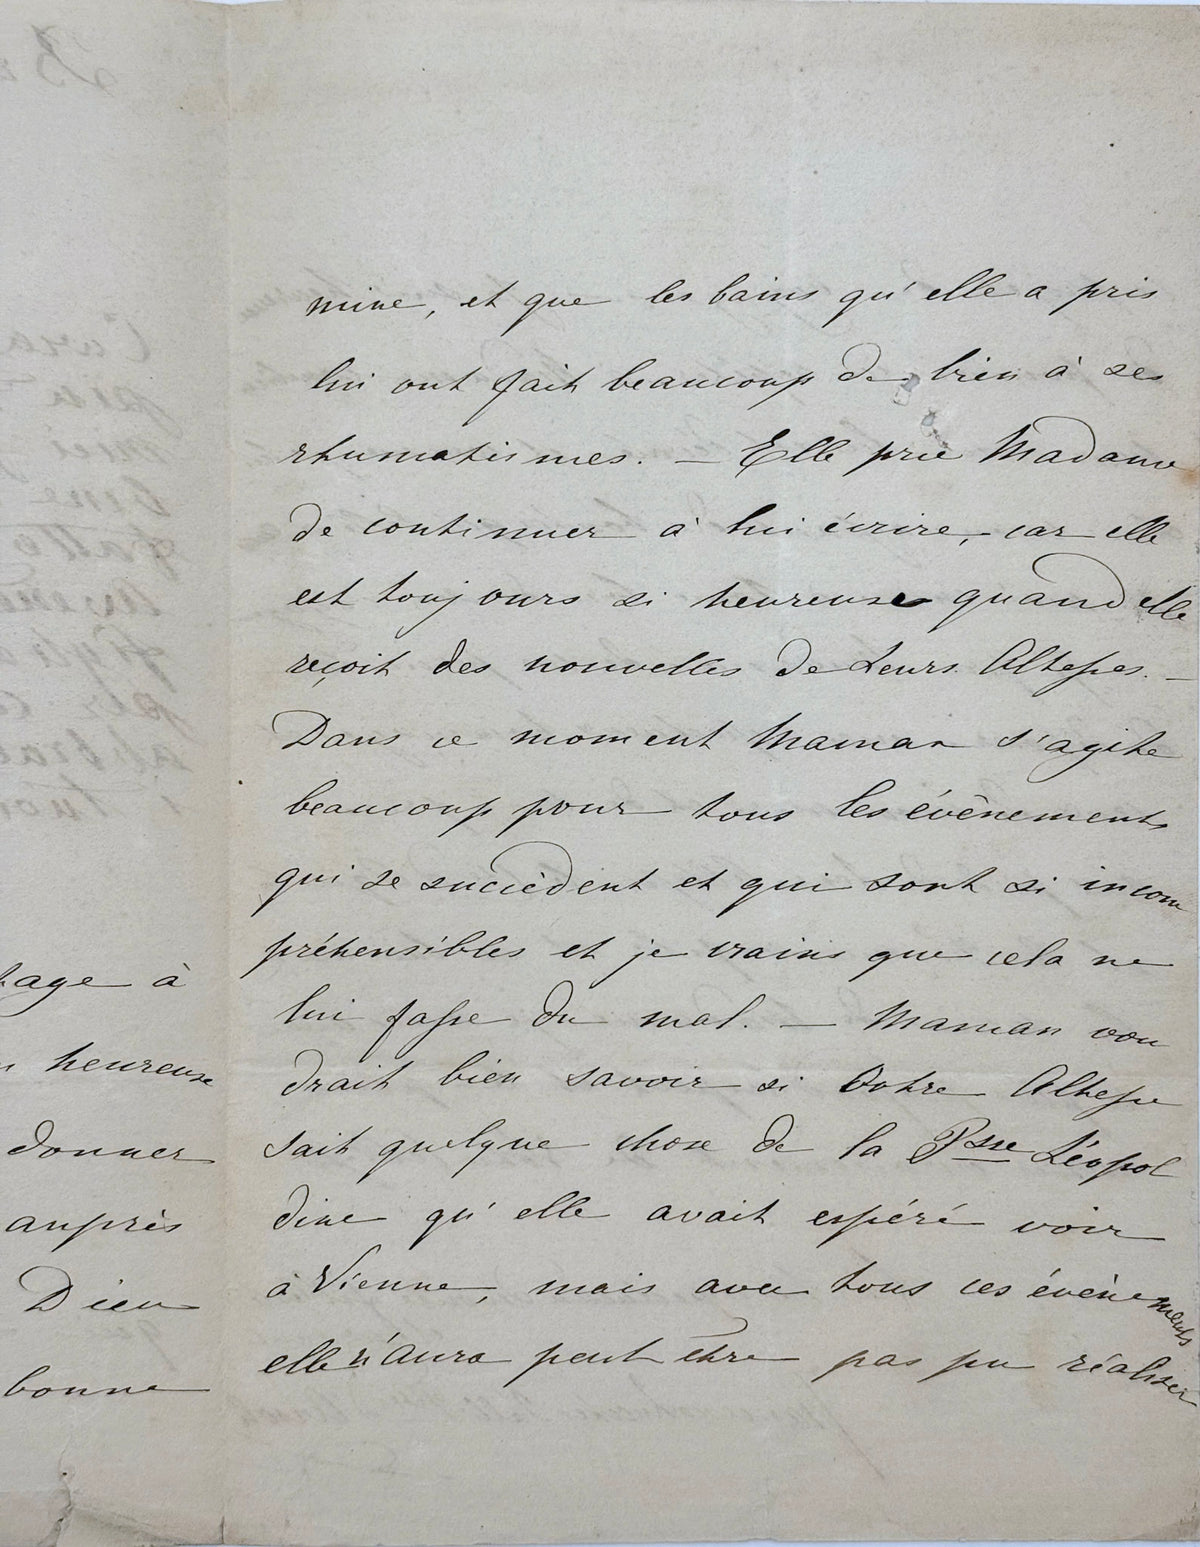 tage à
heureuse
donner
auprès
Dieu
bonne
mine, et que les bains qu'elle a pris
lui ont fait beaucoup de bien à ses
rhumatismes. — Elle prie Madame
de continuer à lui écrire, car elle
est toujours si heureuse quand elle
reçoit des nouvelles de Leurs Altesses. —
Dans ce moment Maman s'agite
beaucoup pour tous les évènements
qui se succèdent et qui sont si incom
préhensibles et je crains que cela ne
lui fasse du mal. — Maman vou
drait bien savoir si Votre Altesse
sait quelque chose de la Psse Léopol
dine qu'elle avait espéré voir
à Vienne, mais avec tous ces évènements
elle n'aura peut être pas pu réaliser